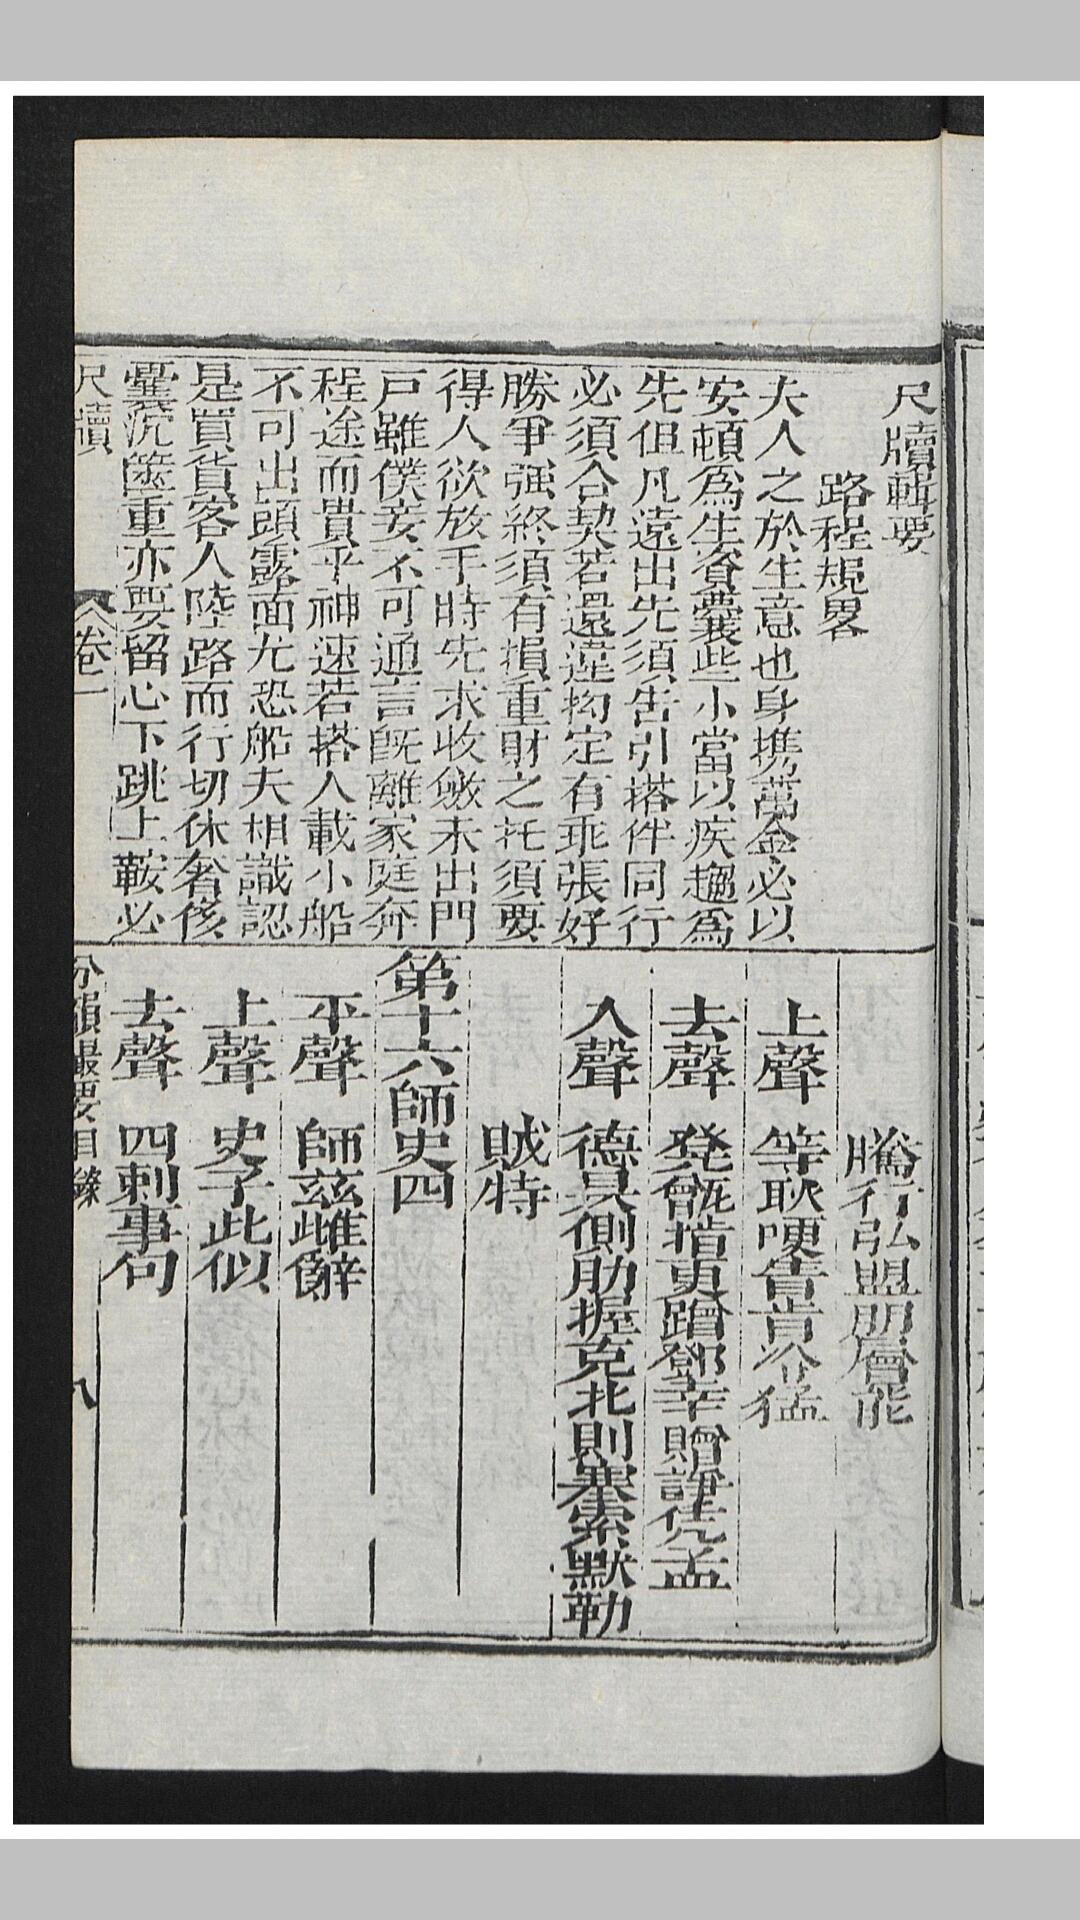 尺牘輯要
路程規畧
夫人之於生意也身携萬金必以
安頓爲生資囊些小當以疾趨爲
先但凡遠出先須告引搭伴同行
必須合契若還違拗定有乖張好
勝爭強終須有損重財之托須要
得人欲放手時先求收斂未出門
戶雖僕妾不可通言旣離家庭奔
程途而貴乎神速若搭人載小船
不可出頭露面尤恐船夫相識認
是買貨客人陸路而行切休奢侈
囊沉篋重亦要留心下跳上鞍必
尺牘 卷一
騰行弘盟朋層能
上聲 等耿哽眚肯 猛
去聲 凳甑揩更蹭鄧幸贈諍 孟
入聲 德 側肋握克北則塞索默勒
賊特
第十六師史四
平聲 師兹雌辭
上聲 史子此似
去聲 四刺事句
分韻撮要目錄 八